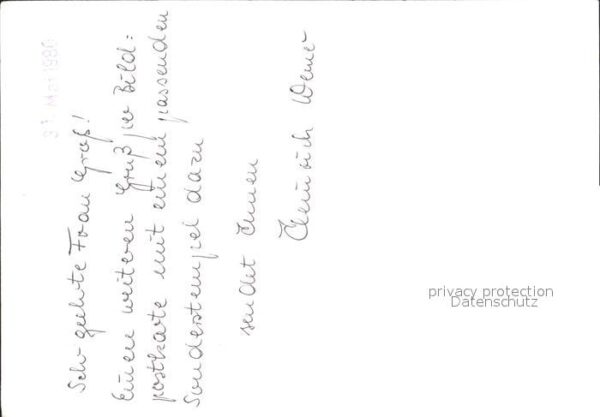 31. Mai 1986
Sehr geehrte Frau Groß!
Einen weiteren Gruß per Bild=
postkarte mit einem passenden
Sonderstempel dazu
sendet Ihnen
Heinrich Werner
privacy protection
Datenschutz